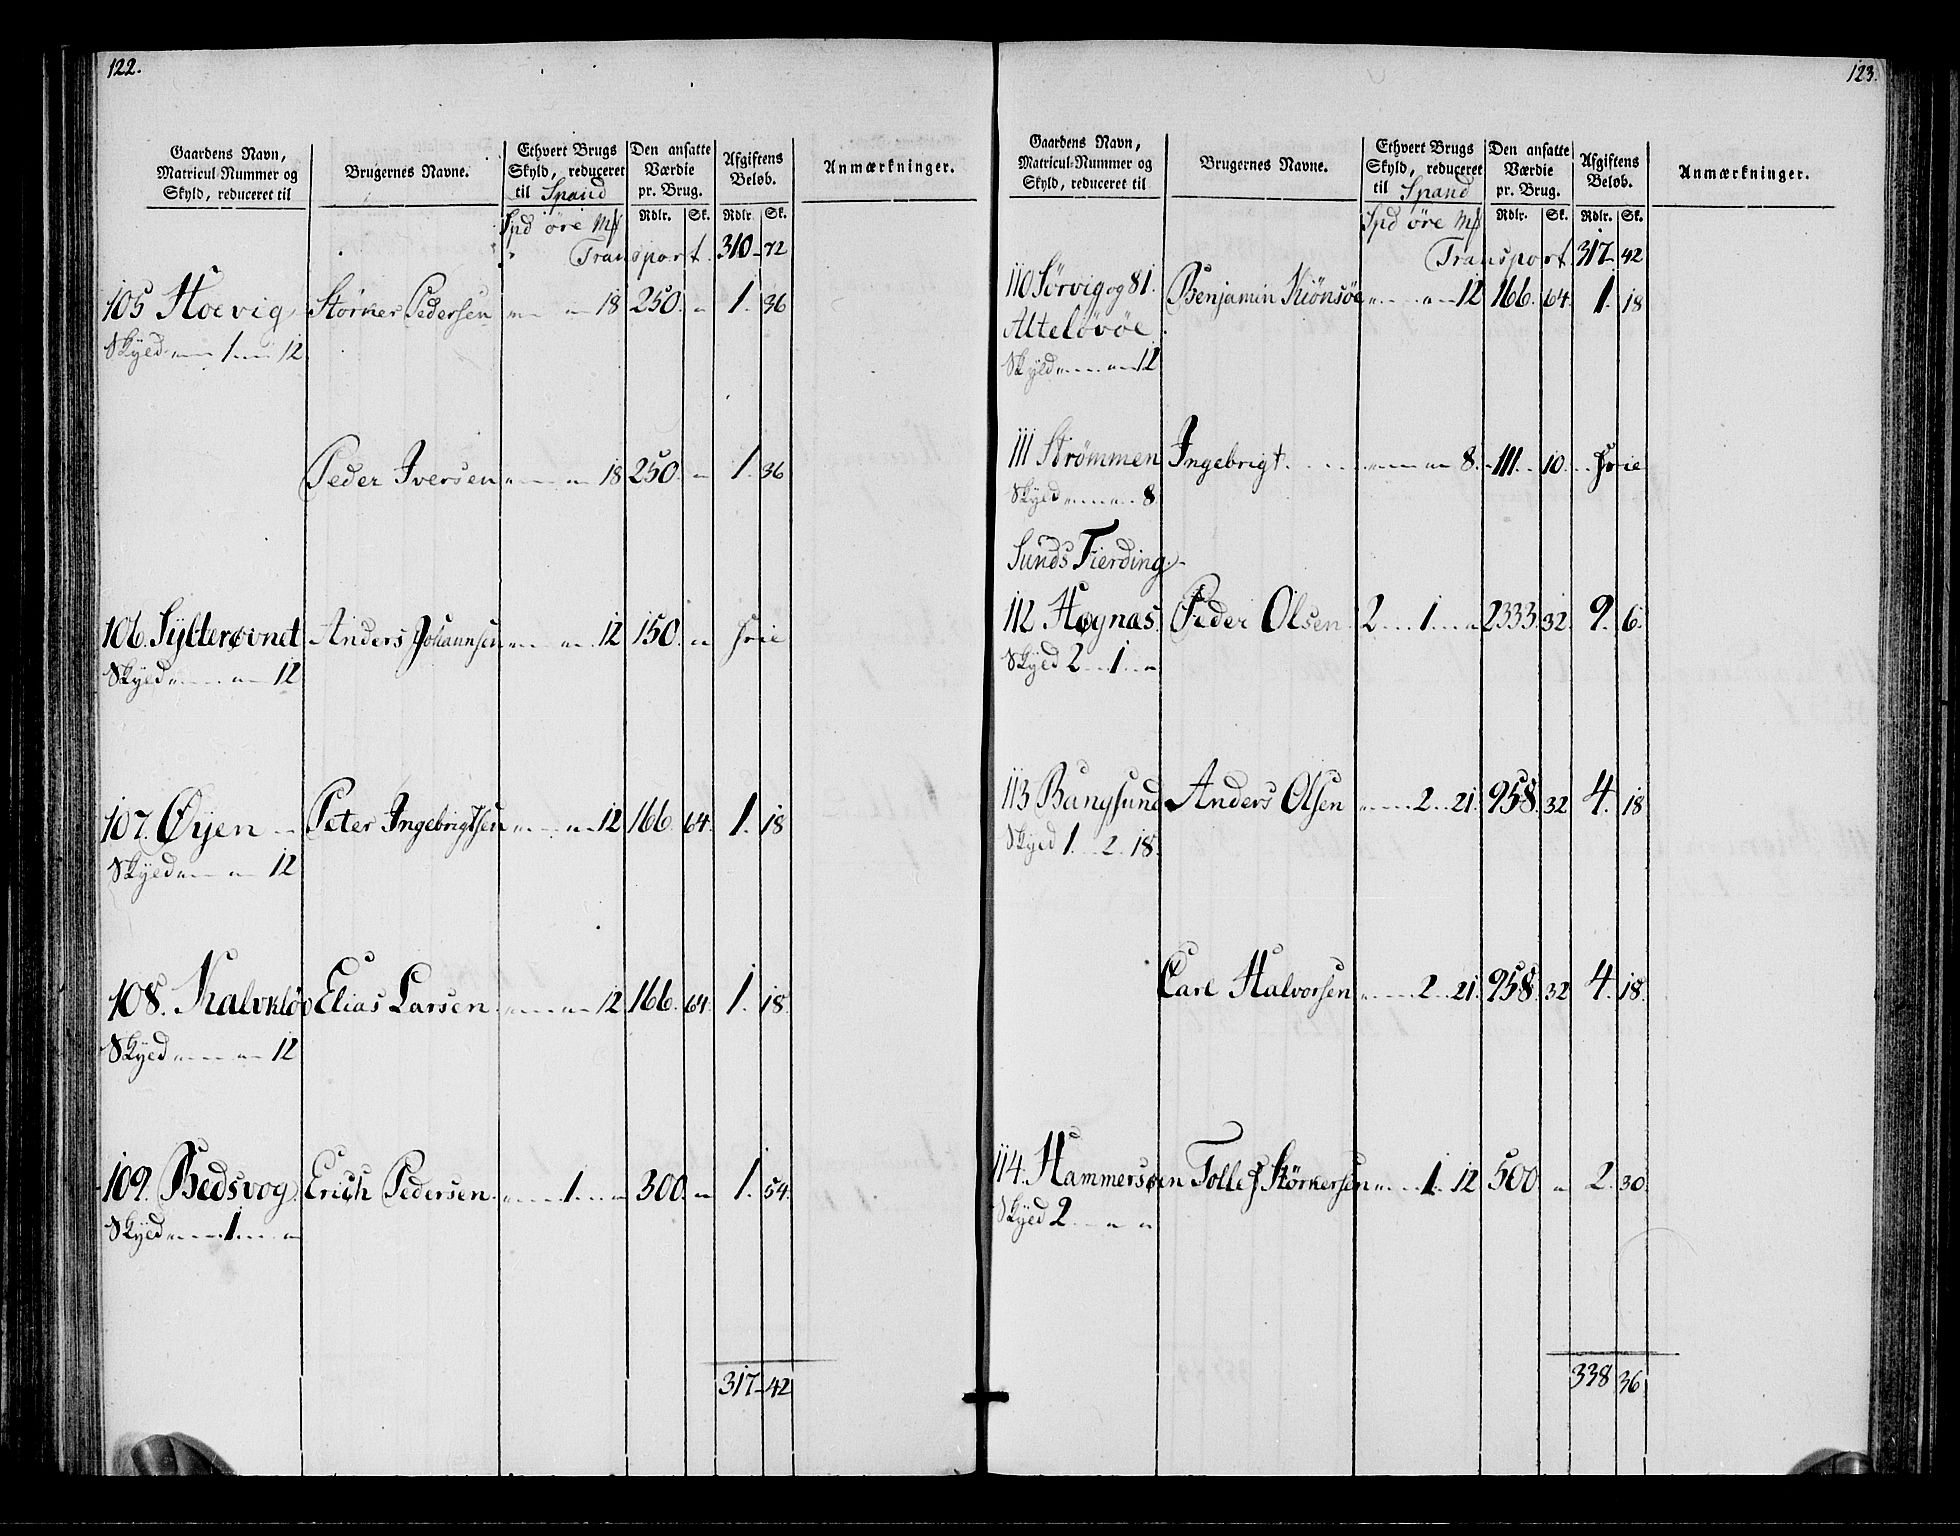 122.
Gaardens Navn, Matricul Nummer og Skyld, reduceret til | Brugernes Navne. | Ethvert Brugs Skyld, reduceret til Spand | Den ansatte Værdie pr. Brug. | Afgiftens Beløb. | Anmærkninger.
Spd øre Mk | Rdlr. | Sk. | Rdlr. | Sk.
Transport. 310 - 72
105 Hoevig Størker Pedersen " " 18 250. " 1. 36
Skyld " 1 " 12
Peder Iversen " " 18 250. " 1. 36
106. Sylterøvnet Anders Johannsen " " 12 150. " frie
Skyld " " 12
107. Øyen Peter Ingebrigtsen " " 12 166. 64. 1. 18
Skyld " " 12
108. Kalvkløv Elias Larsen " " 12 166. 64. 1. 18.
Skyld " " 12
109. Bedsvog Erich Pedersen " 1 " 300. " 1. 54.
Skyld " 1 "
317 - 42
123.
Gaardens Navn, Matricul-Nummer og Skyld, reduceret til | Brugernes Navne. | Ethvert Brugs Skyld, reduceret til Spand | Den ansatte Værdie pr. Brug. | Afgiftens Beløb. | Anmærkninger.
Spd øre Mk | Rdlr. | Sk. | Rdlr. | Sk.
Transport. 317 42
110 Sørvig og 81. Benjamin Kiønsøe " " 12 166. 64. 1. 18
Alteløvöe
Skyld " " 12
111 Strømmen Ingebrigt " " 8. 111. 10. frie
Skyld " " 8
Sunds Fierding.
112 Høgnas Peder Olsen 2 1 " 2333. 32. 9. 6.
Skyld 2 1 "
113 Bangsund Anders Olsen " 2 21. 958. 32 4. 18
Skyld 1 2 18.
Carl Halvorsen " 2 21. 958. 32 4. 18.
114. Hammersøen Tollef Størkersen " 1 12 500 " 2. 30.
Skyld 2 " "
338 36